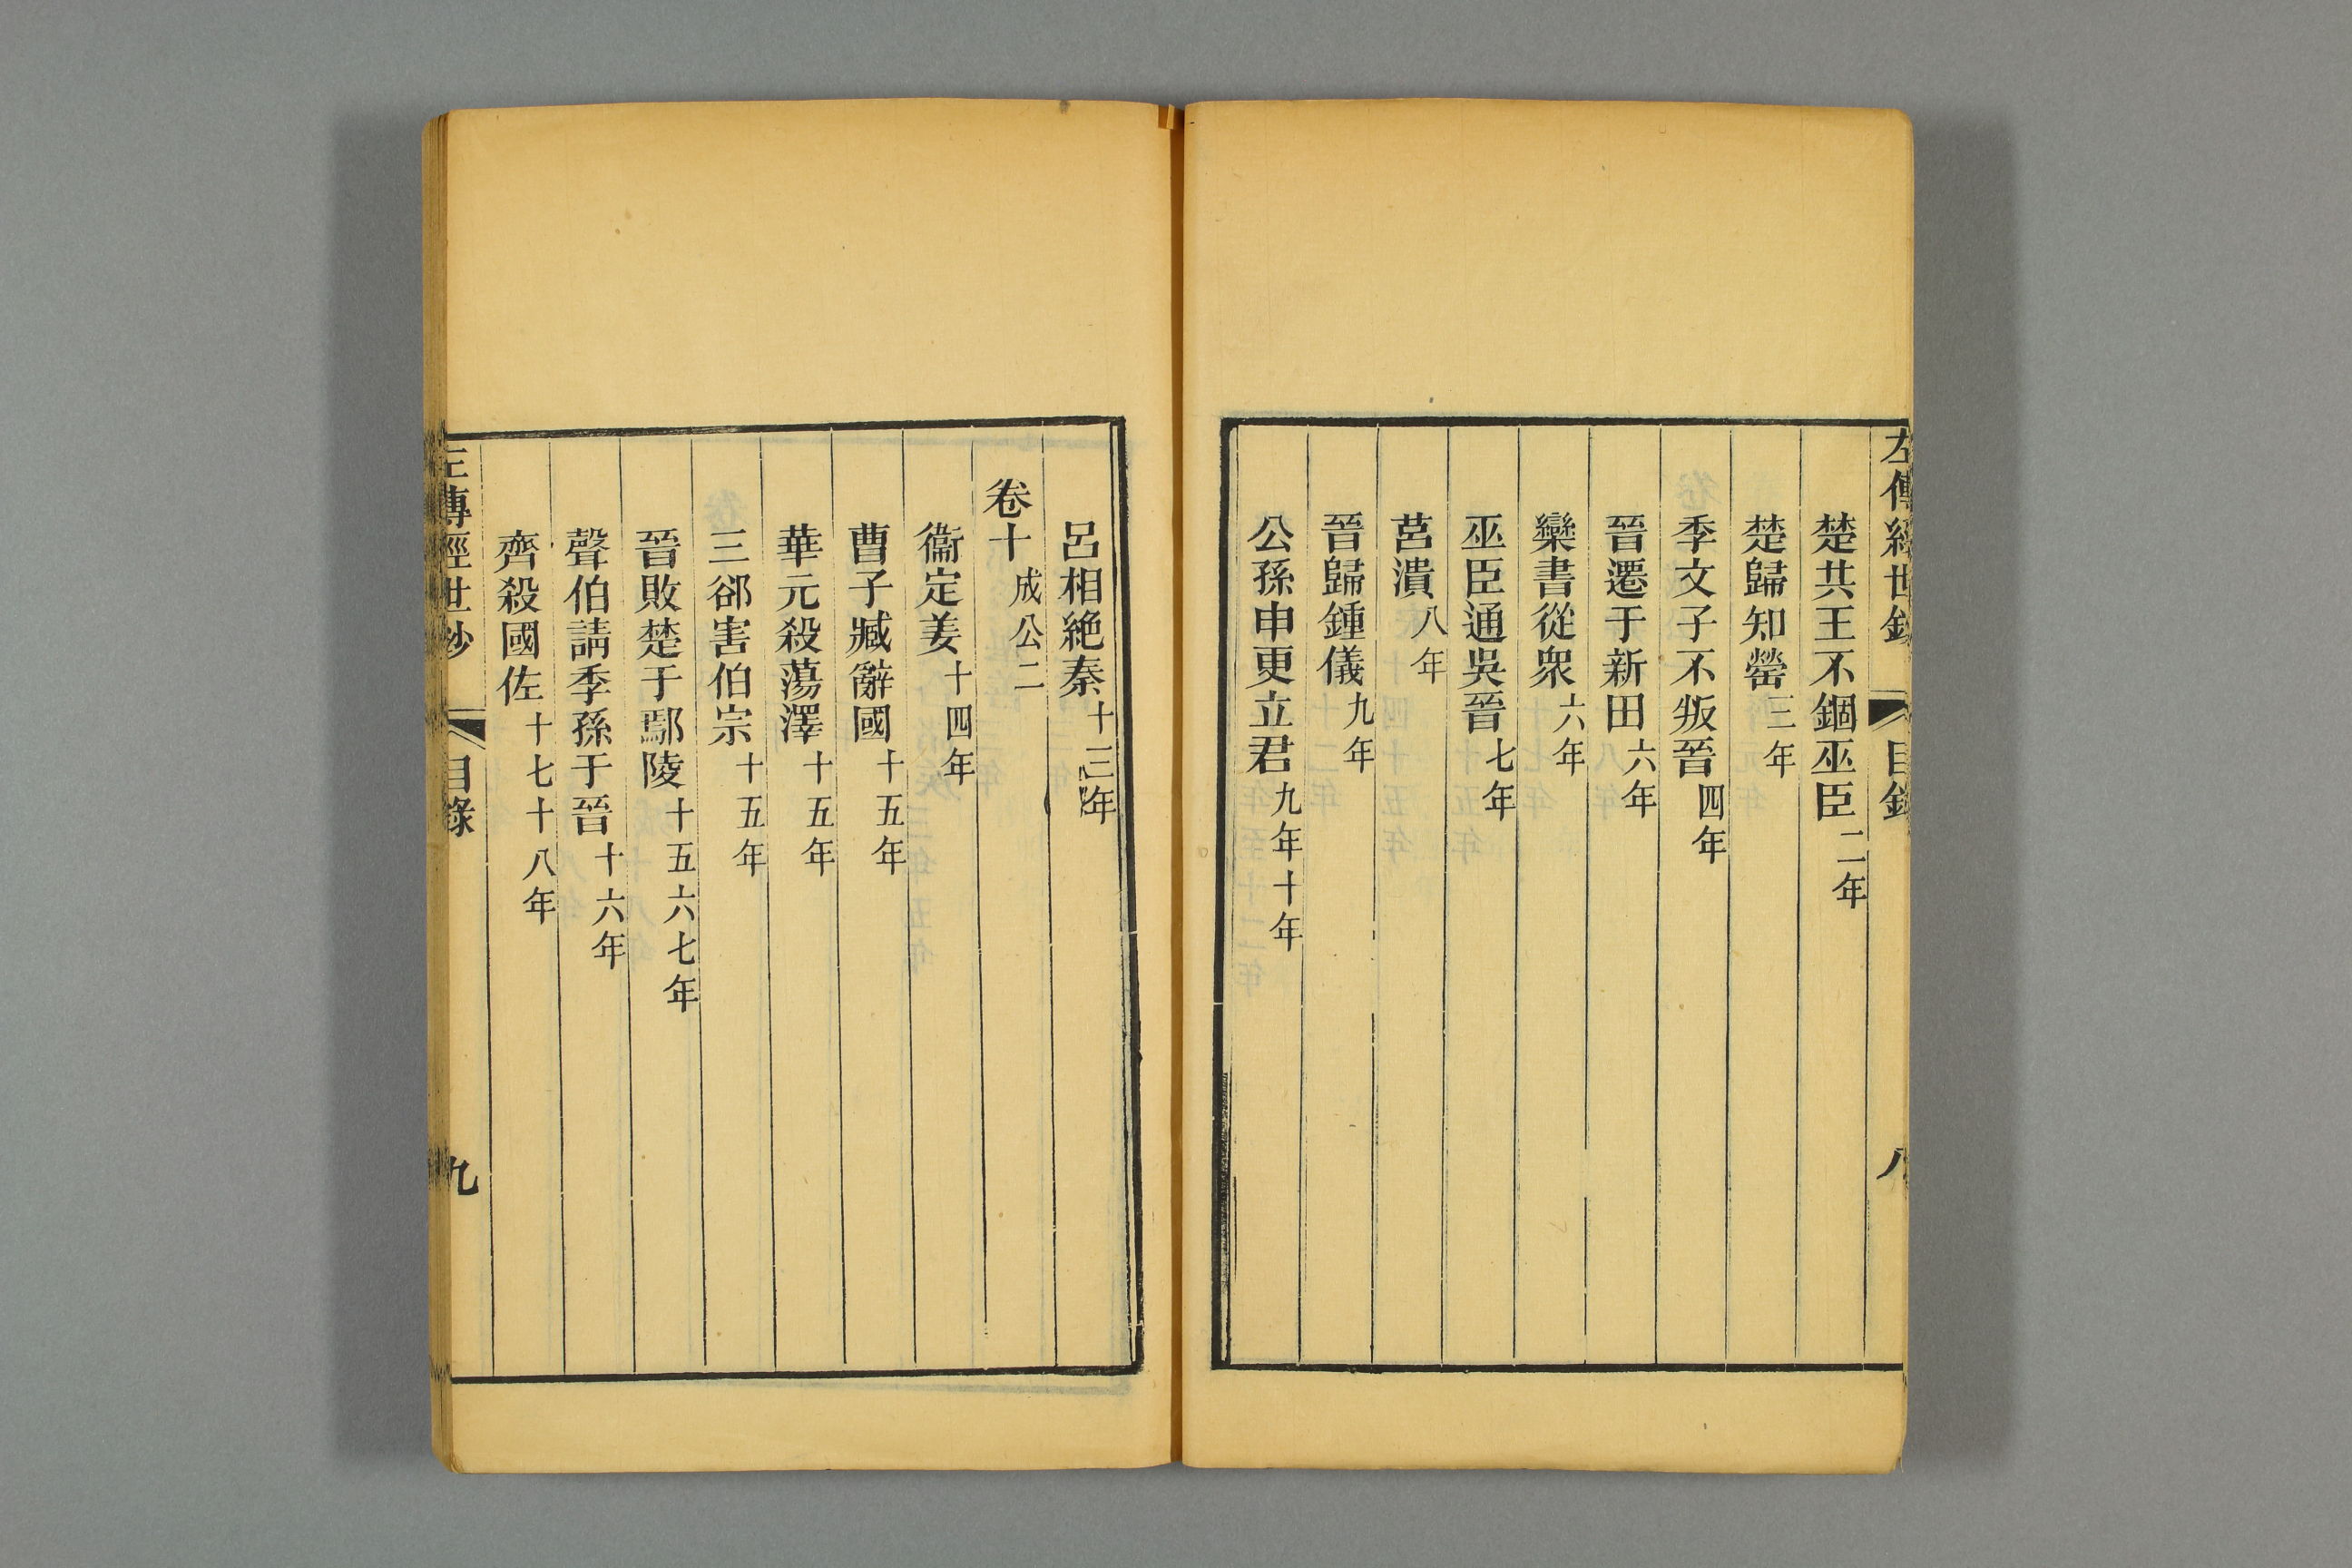 左傳經世鈔 目錄 八
楚共王不錮巫臣二年
楚歸知罃三年
季文子不叛晉四年
晉遷于新田六年
欒書從衆六年
巫臣通吳晉七年
莒潰八年
晉歸鍾儀九年
公孫申更立君九年十年
呂相絶秦十三年
卷十成公二
衞定姜十四年
曹子臧辭國十五年
華元殺蕩澤十五年
三郤害伯宗十五年
晉敗楚于鄢陵十五六七年
聲伯請季孫于晉十六年
齊殺國佐十七十八年
左傳經世鈔 目錄 九